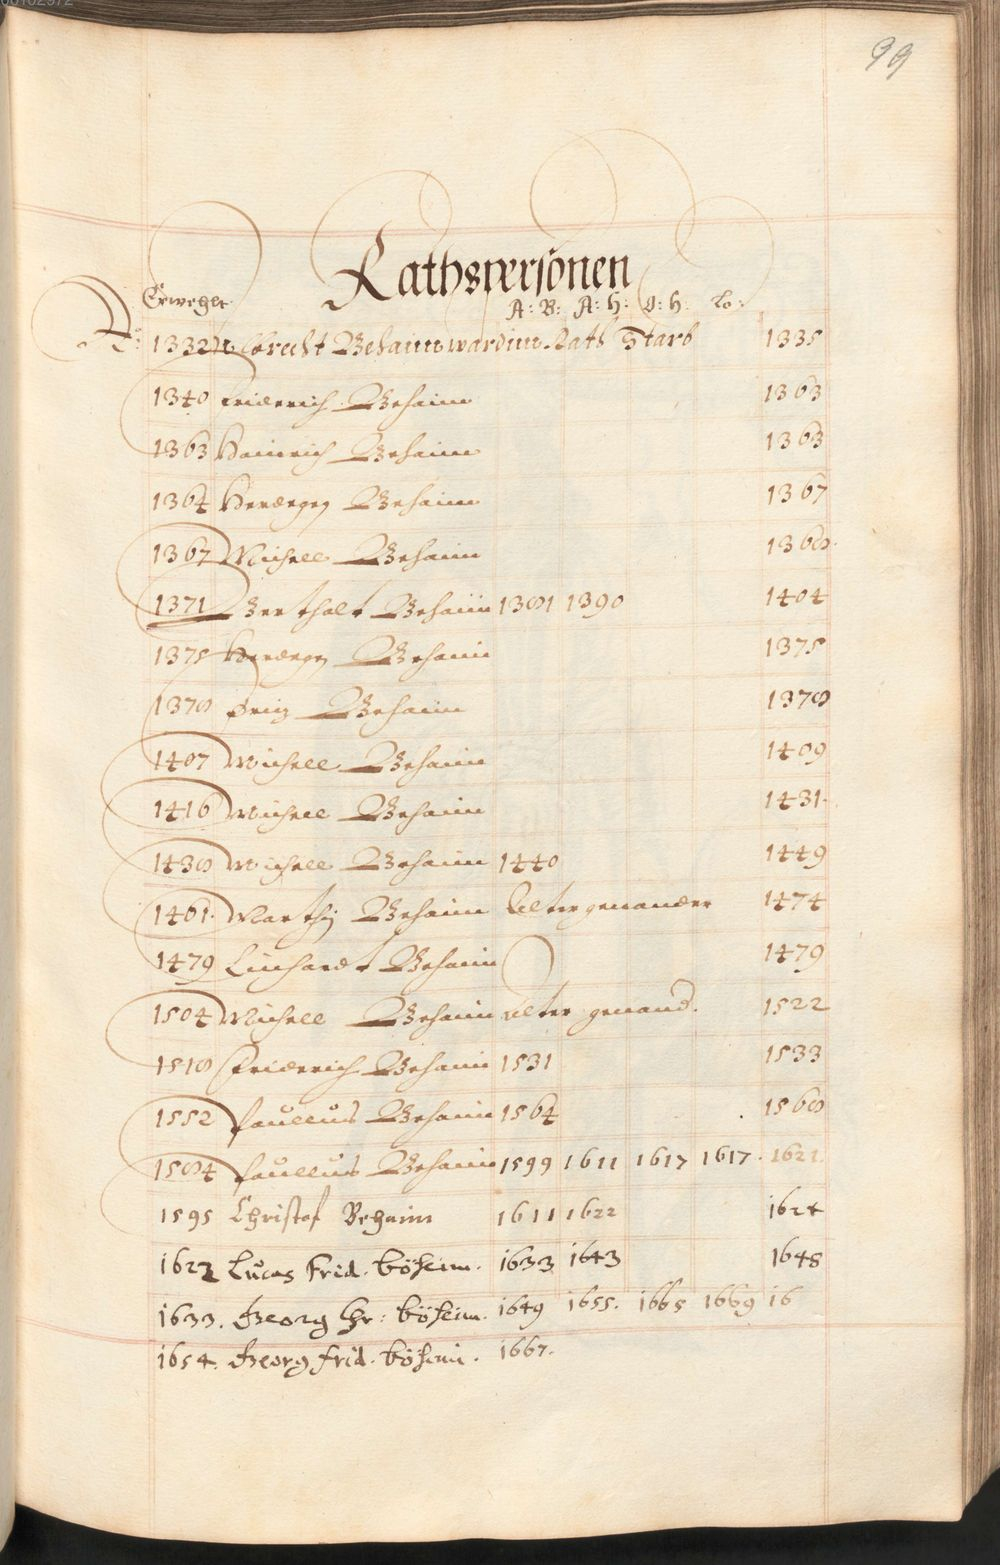 00102972
99
Rathspersonen
Erwehlt A: B: A: H: O: H: Lo:
Ao: 1332 Albrecht Behaim ward im Rath Starb 1335
1340 Friderich Behaim 1363
1363 Hainrich Behaim 1363
1364 Herdegen Behaim 1367
1367 Michell Behaim 1368
1371 Berthalt Behaim 1381 1390 1404
1375 Herdegen Behaim 1375
1378 Fritz Behaim 1378
1407 Michell Behaim 1409
1416 Michell Behaim 1431
1438 Michell Behaim 1440 1449
1461 Marthÿ Behaim Alter genander 1474
1479 Linhardt Behaim 1479
1504 Michell Behaim Alter genand. 1522
1518 Friderich Behaim 1531 1533
1552 Paullus Behaim 1564 1568
1584 Paullus Behaim 1599 1611 1617 1617 1621
1595 Christof Behaim 1611 1622 1624
1622 Lucas Frid. Böheim. 1633 1643 1648
1633. Georg Chr: Böheim. 1649 1655. 1665 1669 16
1654. Georg Frid. Böheim. 1667.